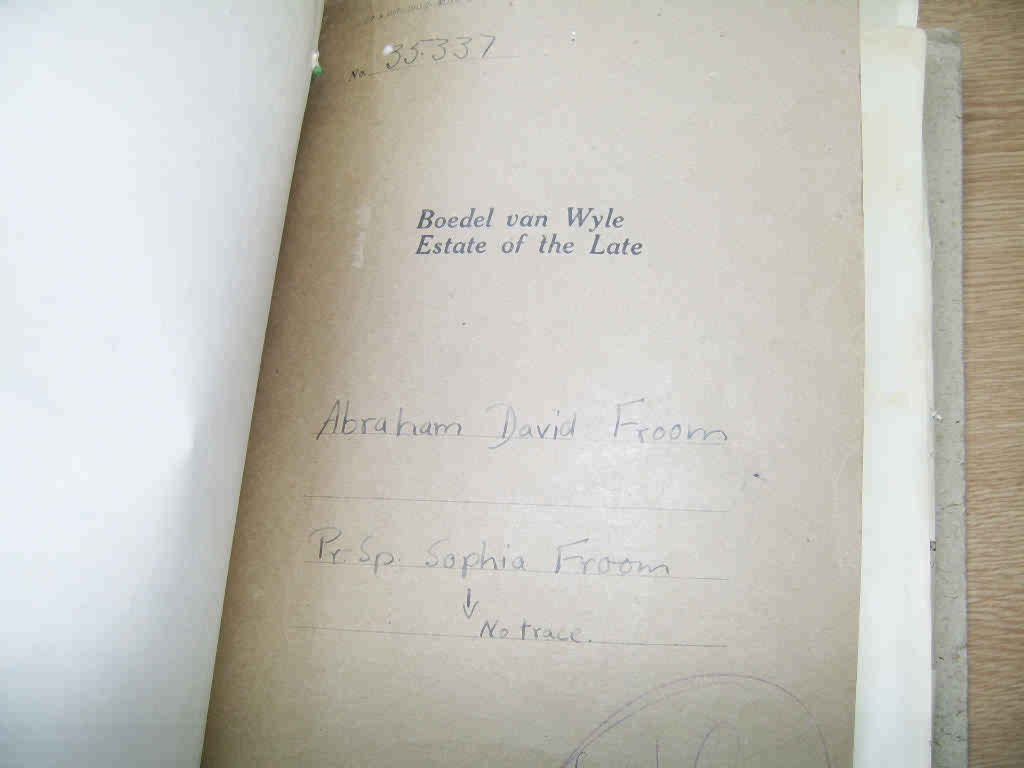 No. 35337
Boedel van Wyle
Estate of the Late
Abraham David Froom
Pr. Sp. Sophia Froom
↓
No trace.